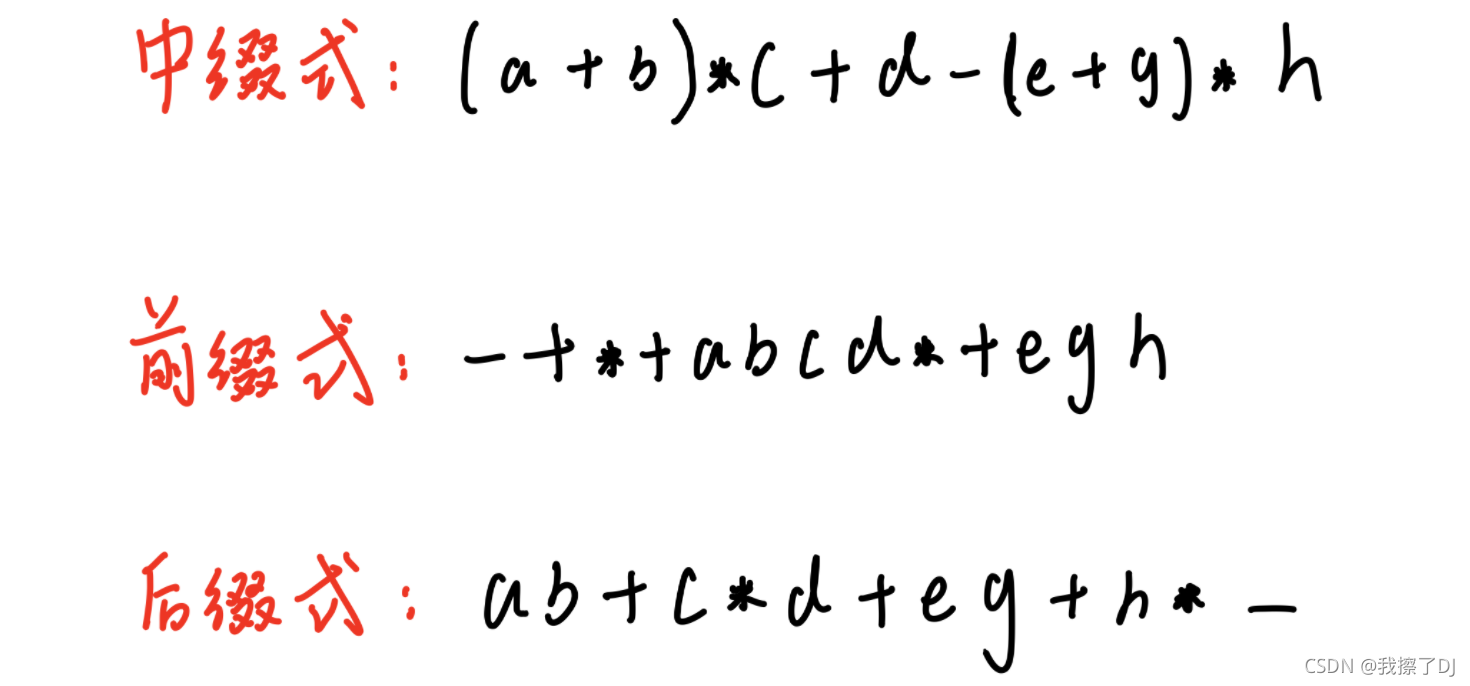 中缀式: (a + b)*c + d - (e + g)* h
前缀式: - + * + a b c d * + e g h
后缀式: a b + c * d + e g + h * -
CSDN @我擦了DJ